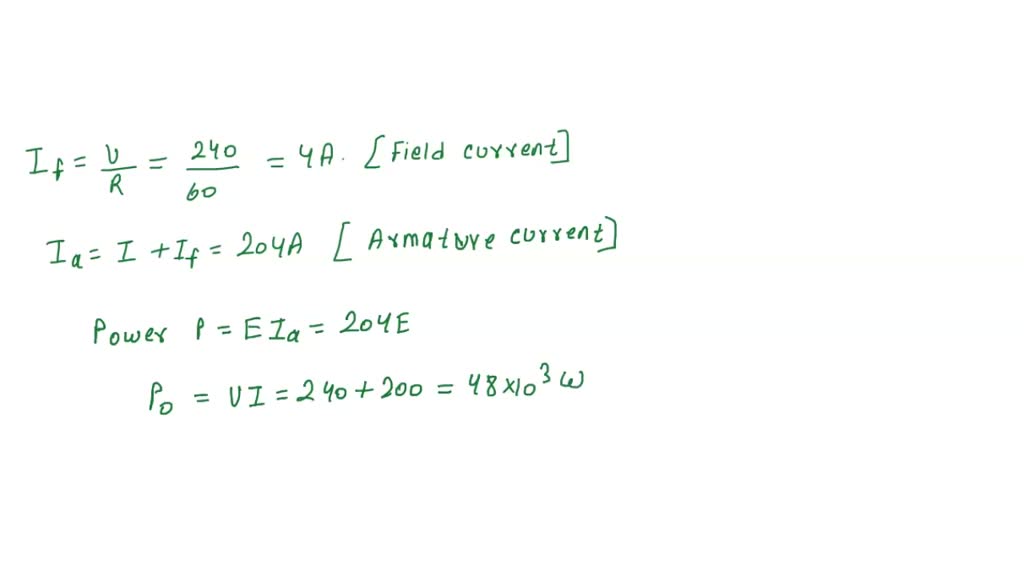 I_f = V/R = 240/60 = 4A. [Field current]
I_a = I + I_f = 204A [Armature current]
Power P = E I_a = 204E
P_0 = VI = 240 + 200 = 48×10^3 W